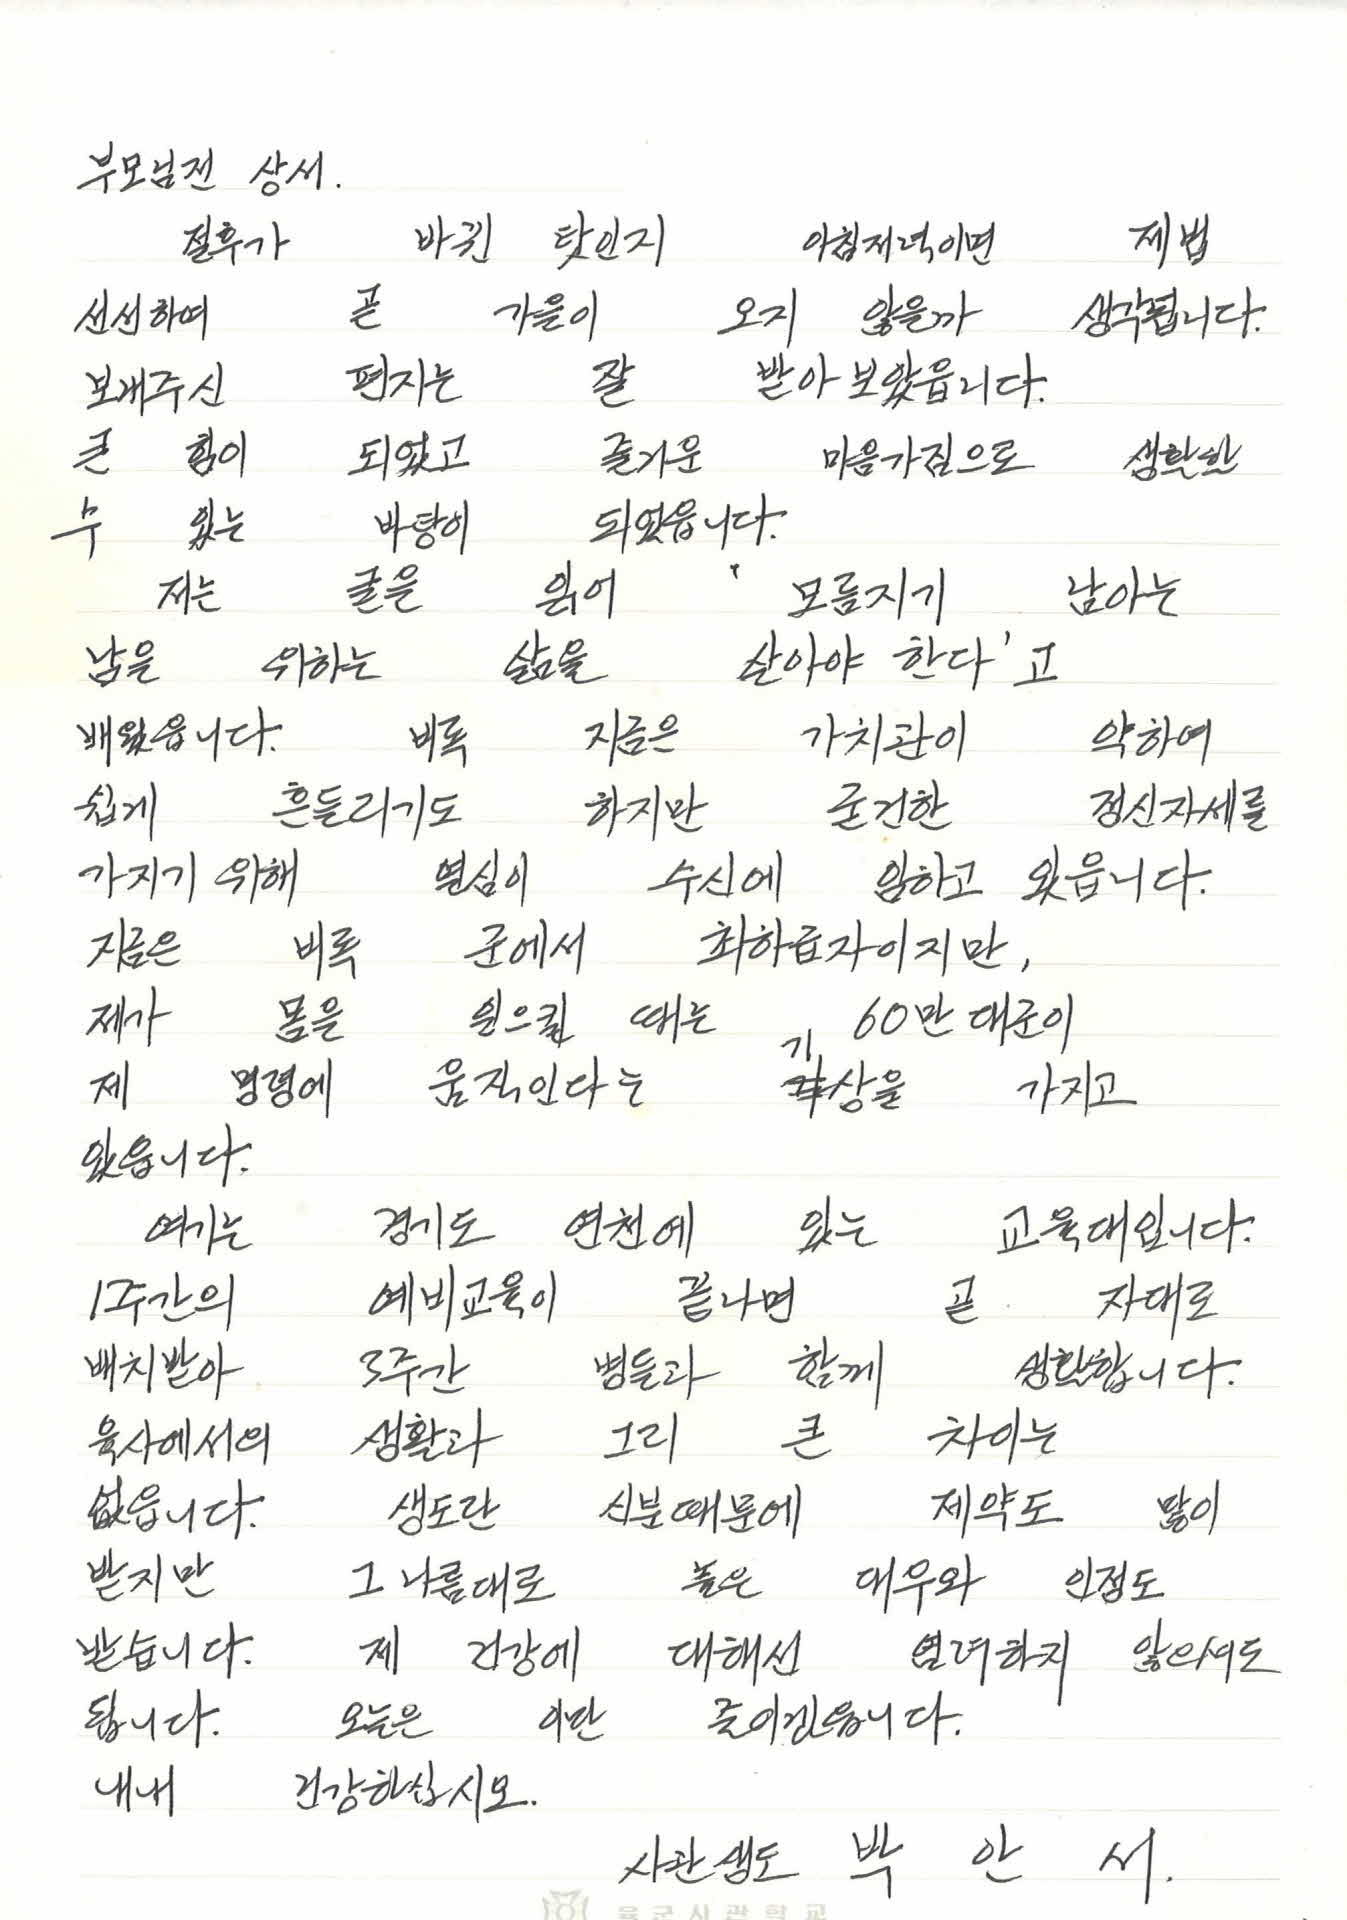 부모님전 상서.
절후가 바뀐 탓인지 아침저녁이면 제법
선선하여 곧 가을이 오지 않을까 생각됩니다.
보내주신 편지는 잘 받아보았읍니다.
큰 힘이 되었고 즐거운 마음가짐으로 생활할
수 있는 바탕이 되었읍니다.
저는 글을 읽어 '모름지기 남아는
남을 위하는 삶을 살아야 한다'고
배웠읍니다. 비록 지금은 가치관이 약하여
쉽게 흔들리기도 하지만 굳건한 정신자세를
가지기 위해 열심히 수신에 임하고 있읍니다.
지금은 비록 군에서 최하급자이지만,
제가 몸을 일으킬 때는 60만 대군이
제 명령에 움직인다는 기상을 가지고
있읍니다.
여기는 경기도 연천에 있는 교육대입니다.
1주간의 예비교육이 끝나면 곧 자대로
배치받아 3주간 병들과 함께 생활합니다.
육사에서의 생활과 그리 큰 차이는
없읍니다. 생도란 신분때문에 제약도 많이
받지만 그 나름대로 높은 대우와 인정도
받습니다. 제 건강에 대해선 염려하지 않으셔도
됩니다. 오늘은 이만 줄이겠읍니다.
내내 건강하십시오.
사관생도 박 안 서.
육군사관학교